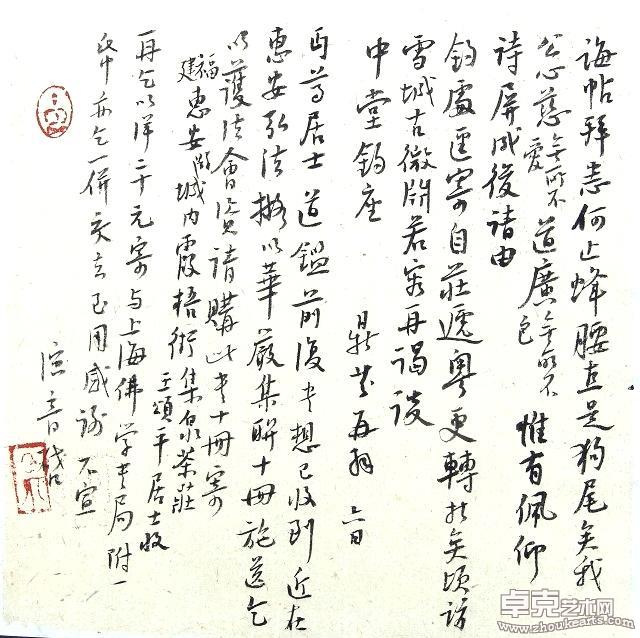 诲帖拜悉何止蜂腰直是狗尾矣我
公心慈无所不爱道广无所不包惟有佩仰
诗屏成后请由
钧处迳寄自庄递粤更转折矣顷访
雪城古微闢若容再谒谈
中堂钧座 再拜 六日
丏尊居士道鉴前复书想已收到近在
惠安弘法拟以華嚴集联十冊施送乞
以護法会资请購此书十冊寄
福建惠安城内霞梧街集泉茶莊
王頌平居士收
再乞以洋二十元寄与上海佛学书局附一
纸亦乞一併交去至用感谢不宣
演音启
卓克艺术网
www.zhoukearts.com